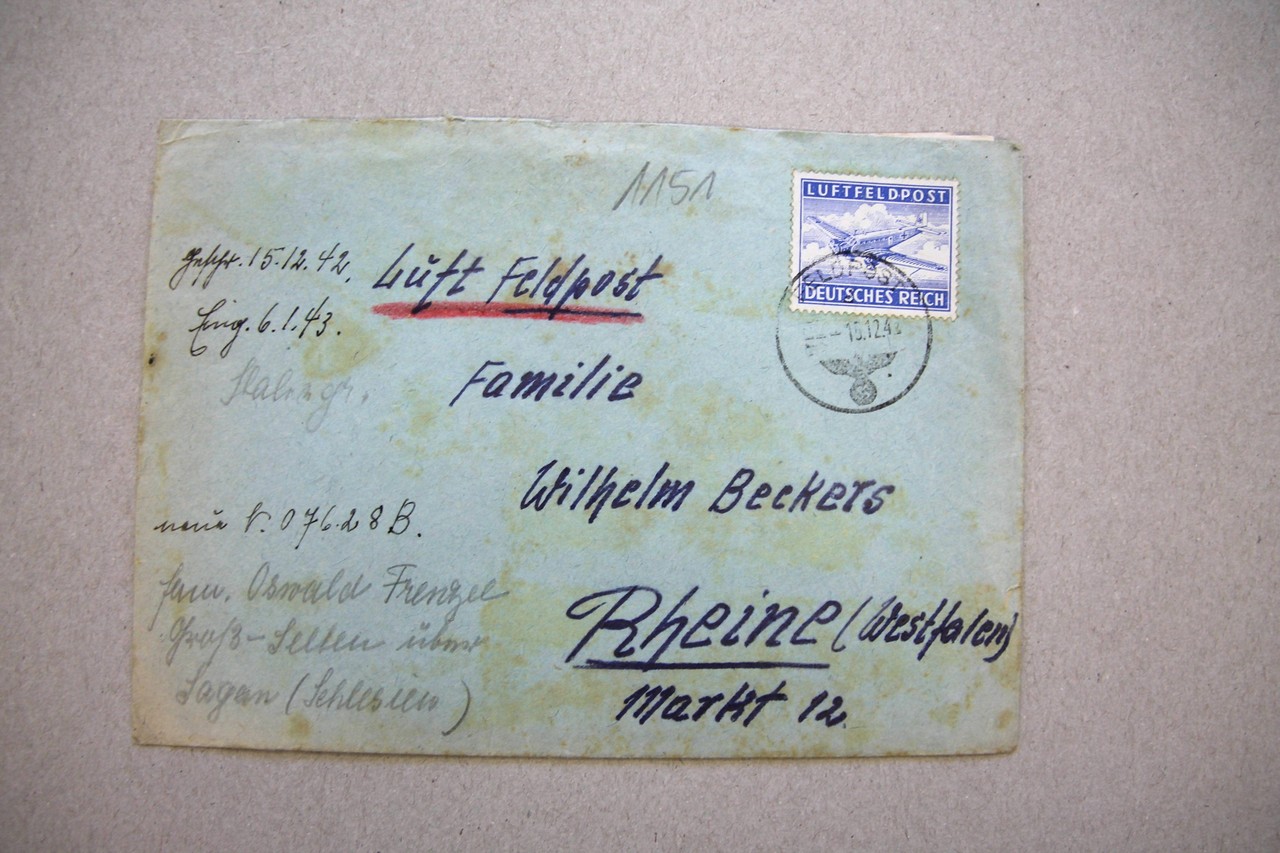 1151
LUFTFELDPOST
DEUTSCHES REICH
FELDPOST
15.12.42
Geschr. 15.12.42.
Luft Feldpost
Eing. 6.1.43.
Familie
Wilhelm Beckers
neue N. 07628 B.
Fam. Oswald Frenzel
Groß-Selten über
Sagan (Schlesien)
Rheine (Westfalen)
Markt 12